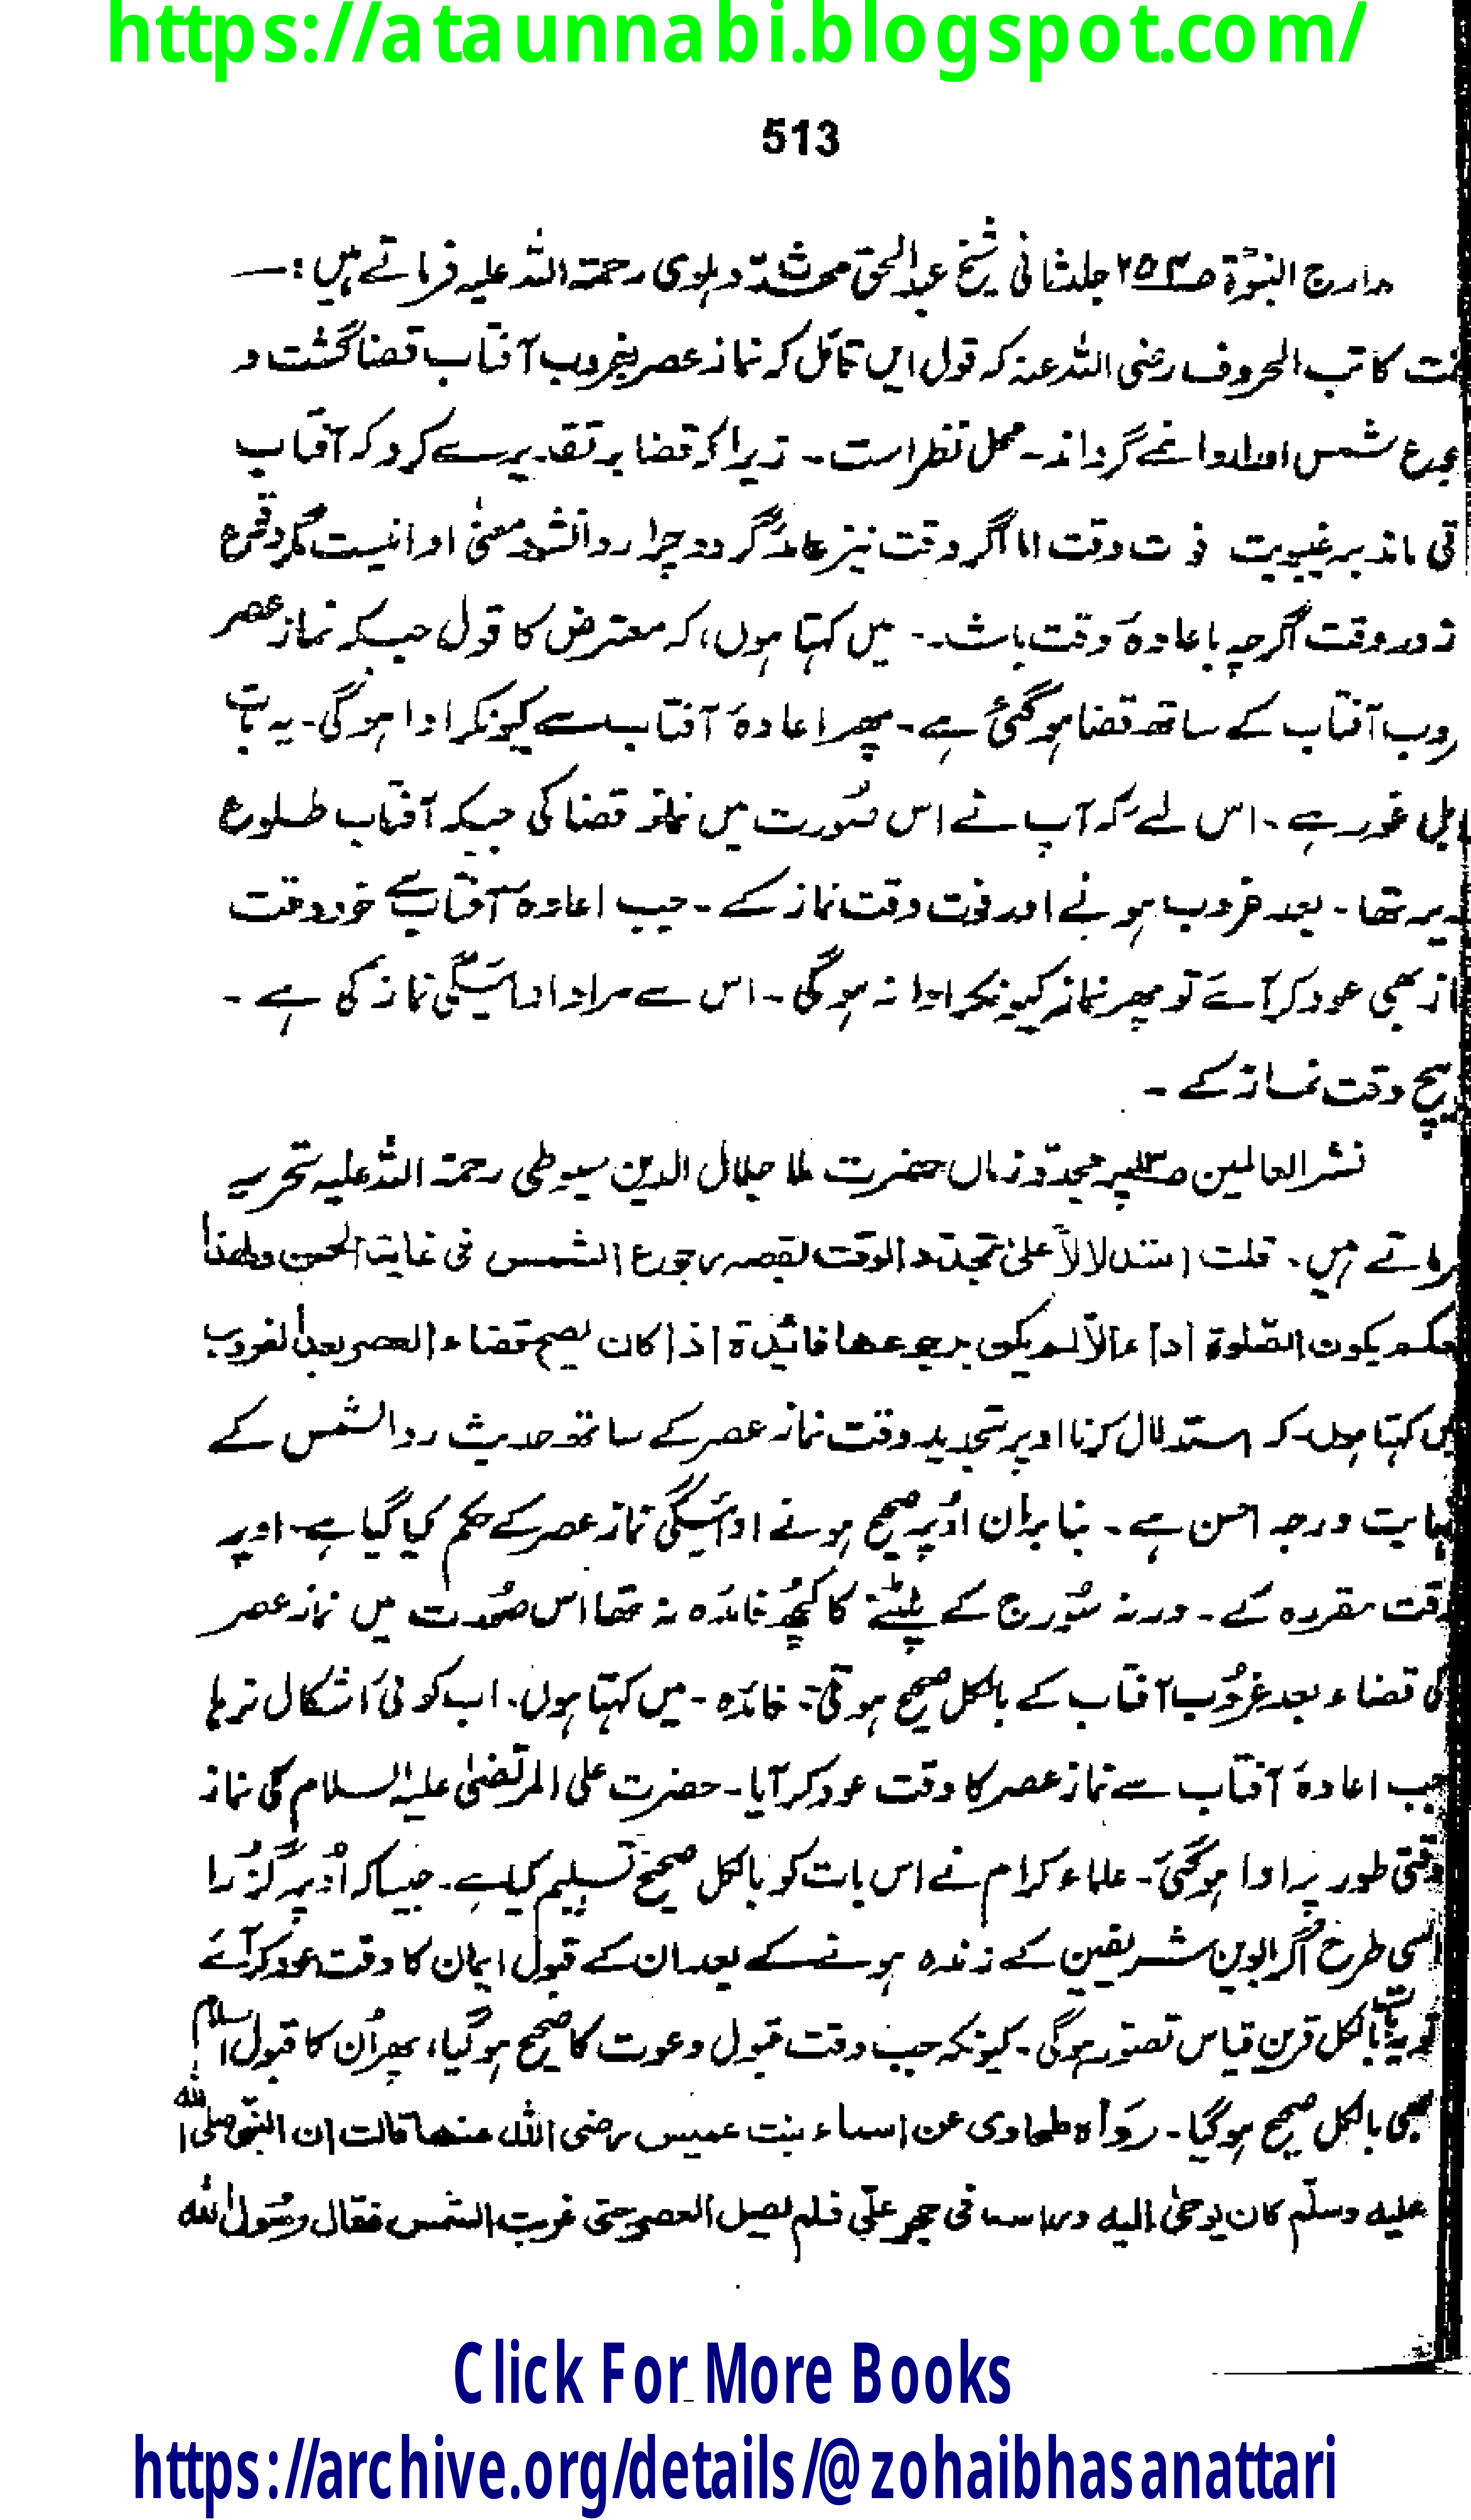 https://ataunnabi.blogspot.com/
513
مدارج النبوّة ص۲۵۳ جلد ثانی شیخ عبدالحق محدّث دہلوی رحمۃ اللہ علیہ فرماتے ہیں :—
کاتب الحروف رضی اللہ عنہ کہ قول ایں قائل کہ نماز عصر بغروب آفتاب قضا گشت و
شمس اورا ادا نمے گرداند۔ محل نظر است۔ زیرا کہ قضا بر تقدیرے کرد کہ آفتاب
ماند بر غیبوبت وقت اما اگر وقت نیز عائد گردد چرا ادا نشود معنیٰ ادا نیست مگر وقوع
وقت اگرچہ باعادۂ وقت باشد۔ میں کہتا ہوں، کہ معترض کا قول جبکہ نماز عصر
آفتاب کے ساتھ قضا ہو گئی ہے۔ پھر اعادۂ آفتاب سے کیونکر ادا ہو گی۔ یہ بات
غور ہے۔ اس لئے کہ آپ نے اس صُورت میں نماز قضا کی جبکہ آفتاب طلوع
تھا۔ بعد غروب ہونے اور فوت وقت نماز کے۔ جب اعادۂ آفتاب سے خود وقت
بھی عود کر آئے تو پھر نماز کیونکر ادا نہ ہو گی۔ اس سے مراد ادائیگی نماز کی ہے ۔
بیچ وقت نماز کے ۔
نشر العالمین پر مجدّد زماں حضرت ملا جلال الدین سیوطی رحمۃ اللہ علیہ تحریر
فرماتے ہیں۔ قلت استدلالاً علیٰ تجدّد الوقت لقصہ رجوع الشمس فی غایت الحسن ولھذا
حکم یکون الصّلوۃ اداءً الّا لم یکن برجوعھا فائیدۃ اذا کان یصح قضاء العصر بعد الغروب
میں کہتا ہوں۔ کہ استدلال کرنا اوپر تجدید وقت نماز عصر کے ساتھ حدیث رد الشمس کے
نہایت درجہ احسن ہے۔ بنا براں اوُپر صحیح ہونے ادائیگی نماز عصر کے حکم کیا گیا ہے۔ اوپر
وقت مقررہ کے۔ ورنہ سُورج کے پلٹنے کا کچھُ فائدہ نہ تھا اس صُورت میں نماز عصر
کی قضاء بعد غروُب آفتاب کے بالکل صحیح ہوتی۔ فائدہ ۔ میں کہتا ہوں۔ اب کوئی اشکال نہ رہا
جب اعادۂ آفتاب سے نماز عصر کا وقت عود کر آیا۔ حضرت علی المرتضیٰ علیہ السلام کی نماز
وقتی طور پر ادا ہو گئی۔ علماء کرام نے اس بات کو بالکل صحیح تسلیم کیا ہے۔ جیسا کہ اوُپر گزُرا
اسی طرح اگر ابوین شریفین کے زندہ ہونے کے بعد ان کے قبول ایمان کا وقت عود کر آئے
تو یہ بات بالکل قرین قیاس تصوّر ہو گی۔ کیونکہ جب وقت قبول دعوت کا صحیح ہو گیا، پھر اُن کا قبول اسلام
بھی بالکل صحیح ہو گیا۔ رَوَاہ طحاوی عن اسماء بنت عمیس رضی اللہ عنھا قالت ان النبی صلی اللہ
علیہ وسلّم کان یوحیٰ الیہ وراسہ فی حجر علّی فلم یصل العصر حتی غربت الشمس فقال رسُول اللہ
Click For More Books
https://archive.org/details/@zohaibhasanattari